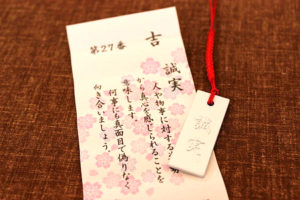 第27番
吉
誠実
人や物事に対する
から真心を感じられることを
意味します。
何事にも真面目で偽りなく
向き合いましょう。
誠実